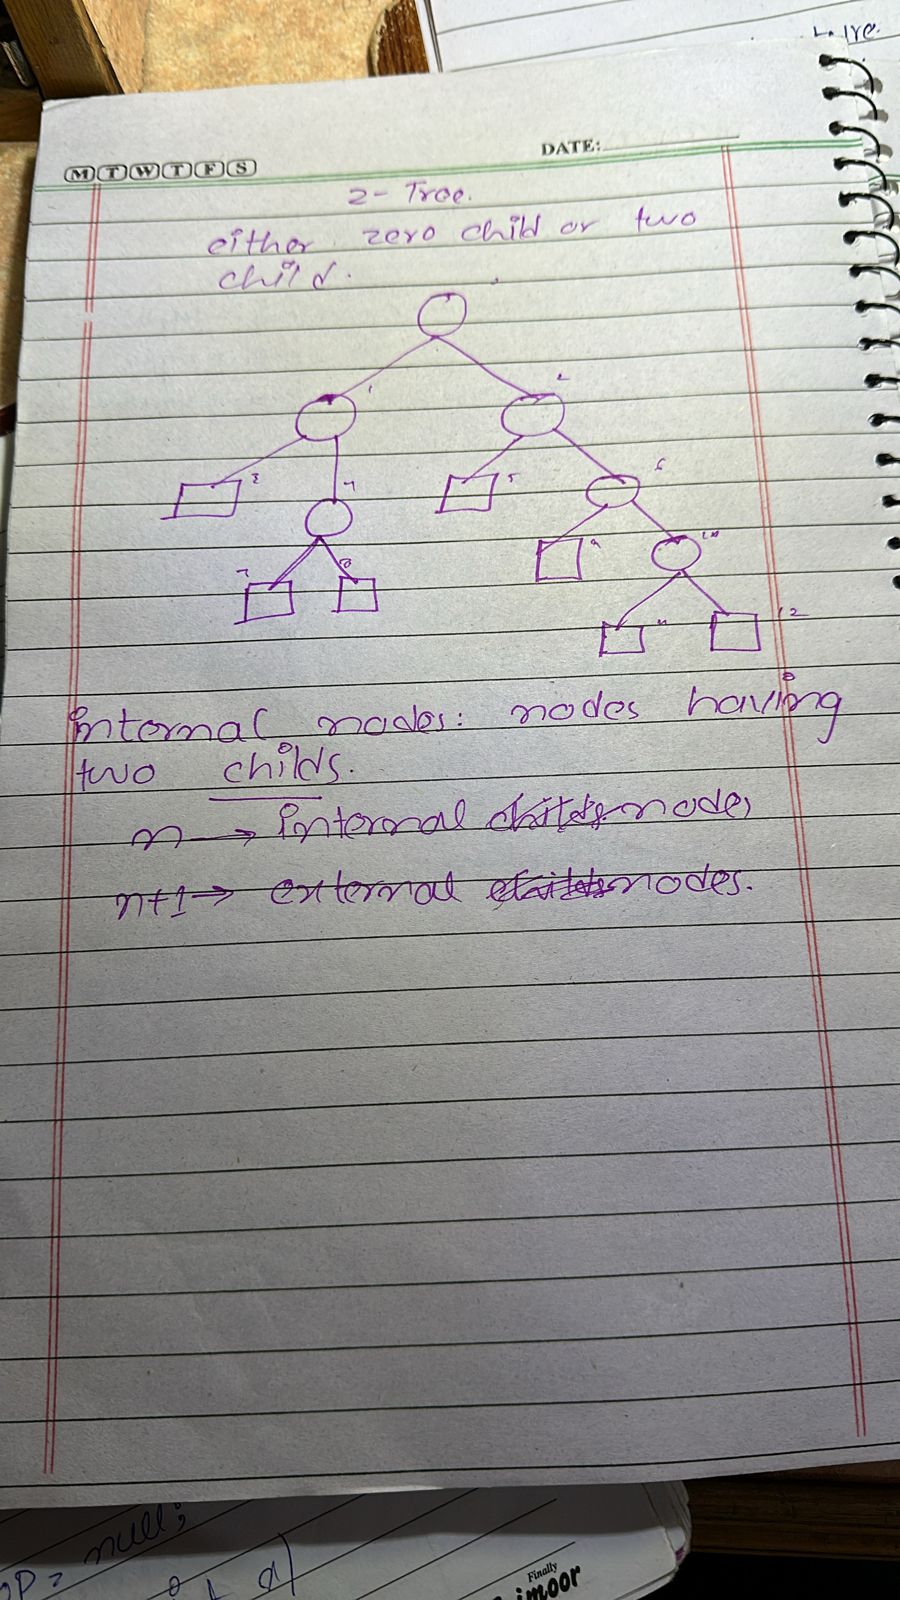 M T W T F S
DATE:
2- Tree.
either zero child or two
child.
1
2
3
4
5
6
7
8
9
10
11
12
internal nodes: nodes having
two childs.
n → internal childs nodes
n+1 → external childs nodes.
null;
Finally